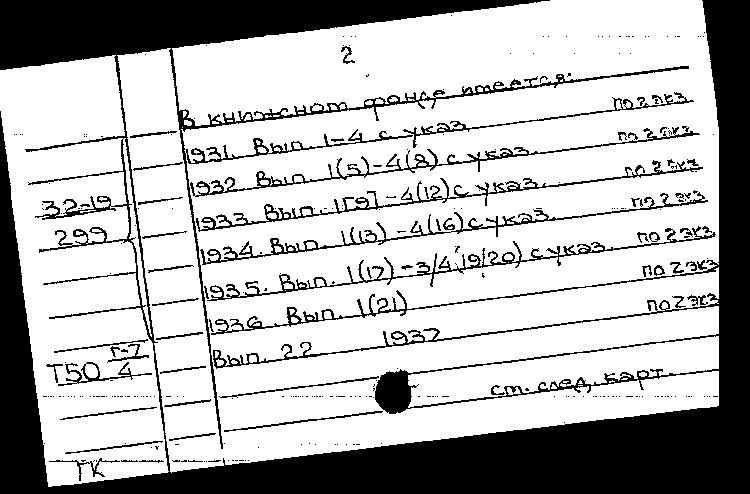 2
В книжном фонде имеется:
1931. Вып. 1-4 с указ. по 2 экз
1932 Вып. 1(5)-4(8) с указ. по 2 экз.
1933. Вып. 1[9] - 4(12) с указ. по 2 экз
1934. Вып. 1(13) - 4(16) с указ. по 2 экз.
1935. Вып. 1(17) - 3/4(19/20) с указ. по 2 экз.
1936. Вып. 1(21) по 2 экз
Вып. 22 1937 по 2 экз
32-19
299
Т50 г-7
4
см. след. карт.
ГК